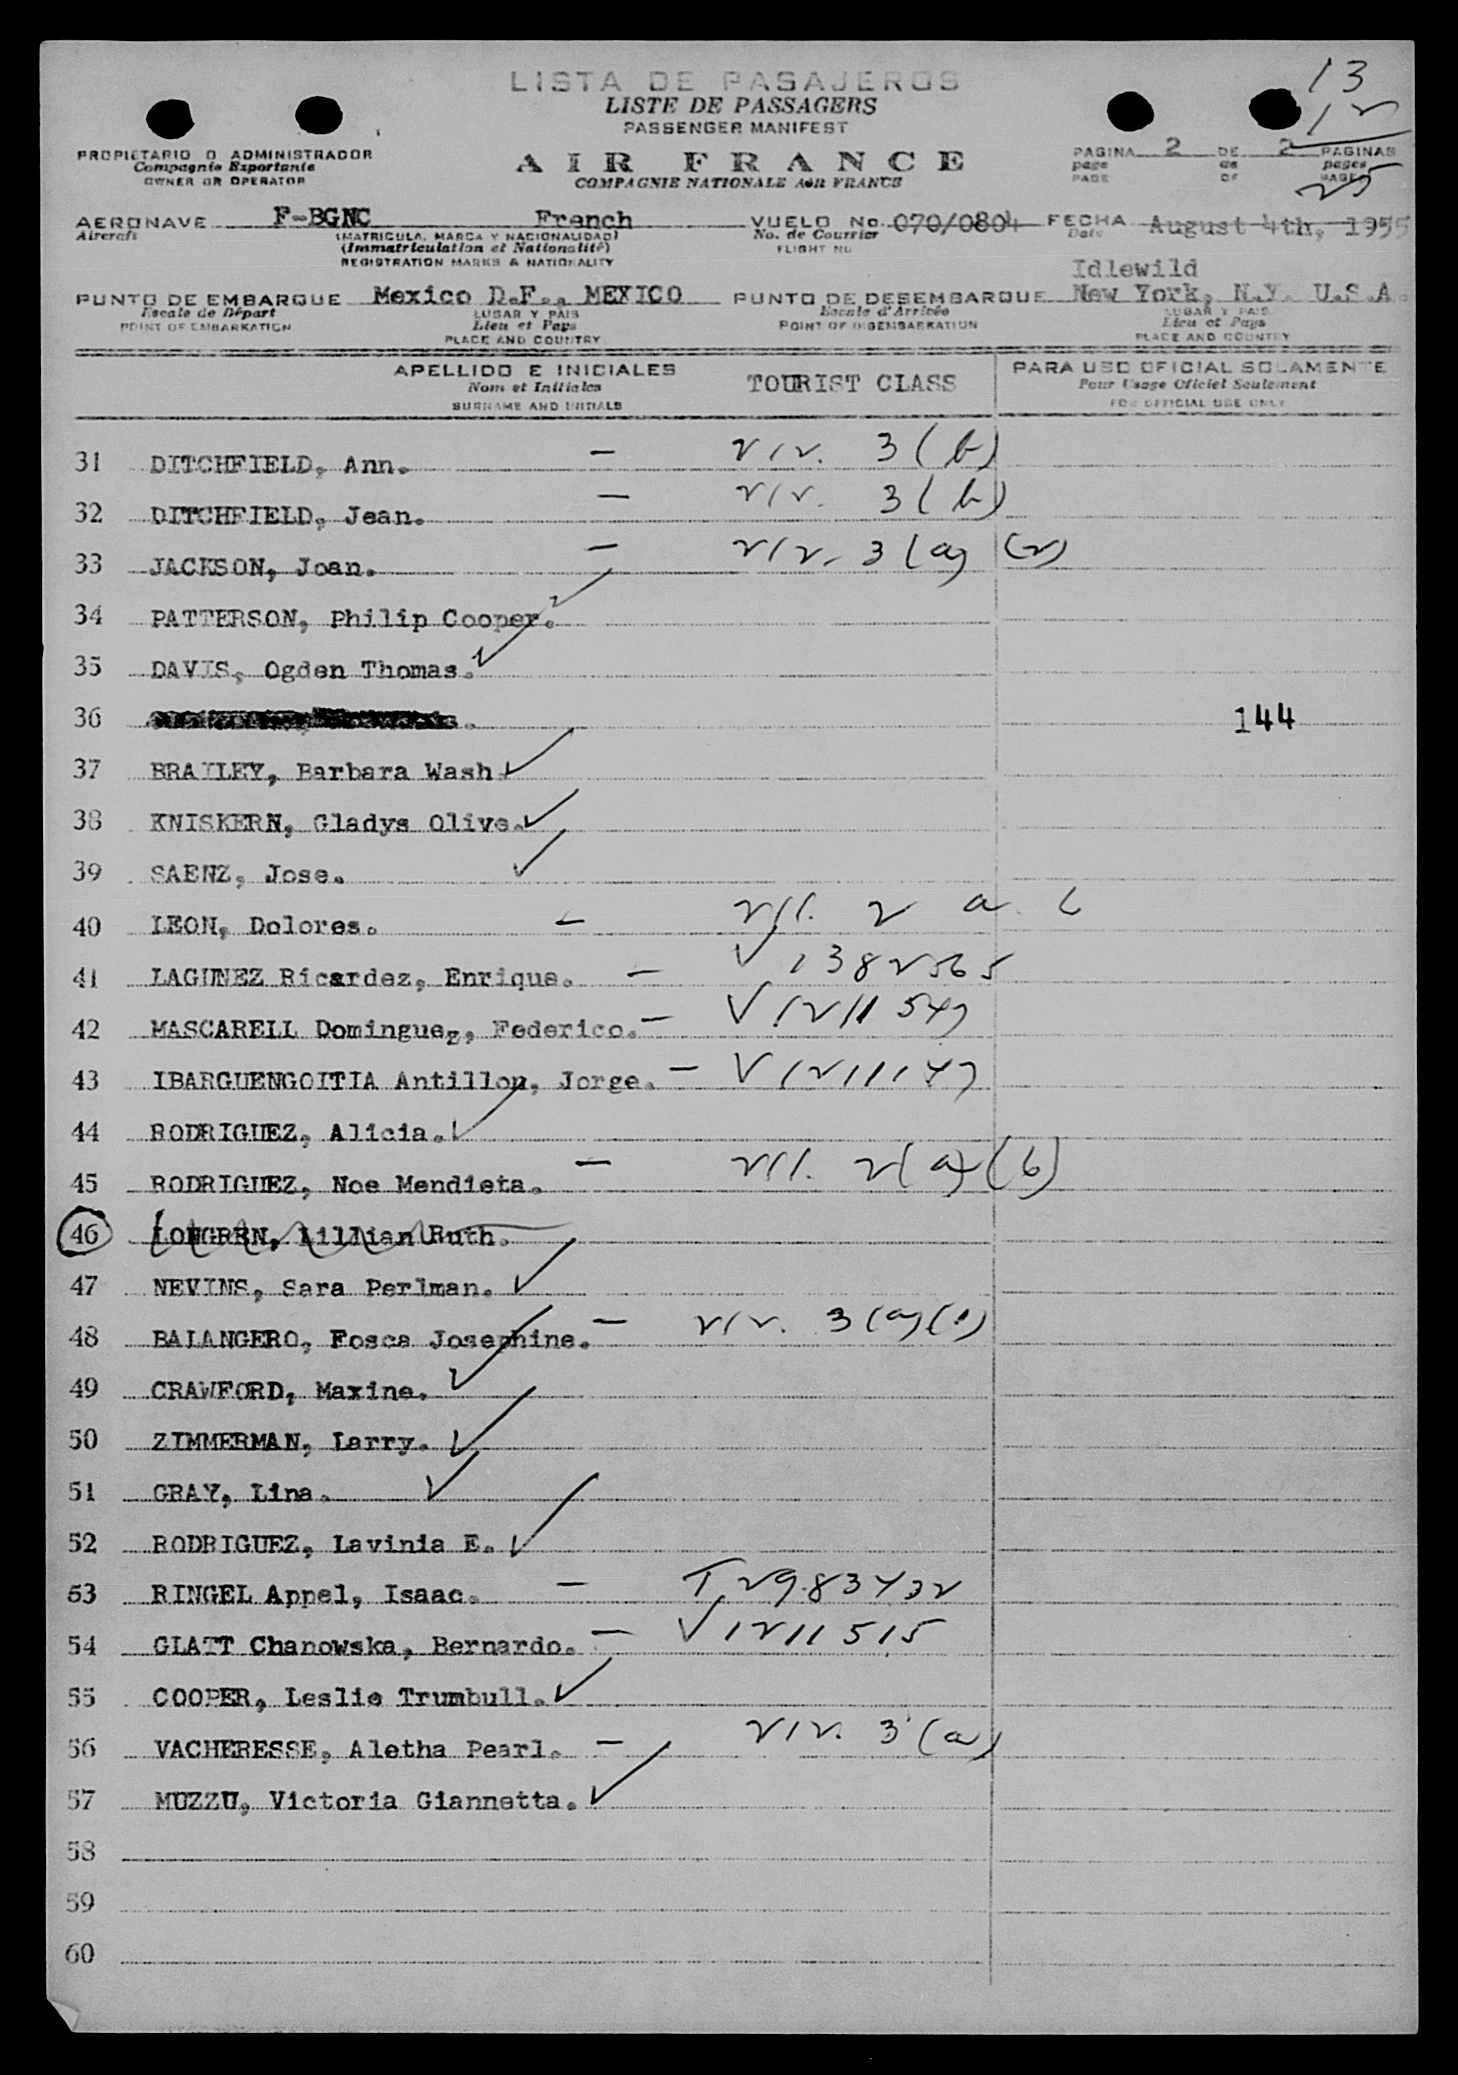 LISTA DE PASAJEROS
LISTE DE PASSAGERS
PASSENGER MANIFEST
13
12
25
PROPIETARIO O ADMINISTRADOR
Compagnie Exportante
OWNER OR OPERATOR
AIR FRANCE
COMPAGNIE NATIONALE AIR FRANCE
PAGINA 2 DE 2 PAGINAS
page de pages
PAGE OF PAGES
AERONAVE F-BGNC French VUELO No. 070/0804 FECHA August 4th, 1955
Aircraft (MATRICULA, MARCA Y NACIONALIDAD) No. de Courrier Date
(Immatriculation et Nationalité) FLIGHT No
REGISTRATION MARKS & NATIONALITY
Idlewild
PUNTO DE EMBARQUE Mexico D.F., MEXICO PUNTO DE DESEMBARQUE New York, N.Y. U.S.A.
Escale de Départ LUGAR Y PAIS Escale d'Arrivée LUGAR Y PAIS
POINT OF EMBARKATION Lieu et Pays POINT OF DISEMBARKATION Lieu et Pays
PLACE AND COUNTRY PLACE AND COUNTRY
APELLIDO E INICIALES TOURIST CLASS PARA USO OFICIAL SOLAMENTE
Nom et Initiales Pour Usage Oficiel Seulement
SURNAME AND INITIALS FOR OFFICIAL USE ONLY
31 DITCHFIELD, Ann. — 212. 3 (b)
32 DITCHFIELD, Jean. — 212. 3 (b)
33 JACKSON, Joan. — 212. 3 (a) (2)
34 PATTERSON, Philip Cooper. ✓
35 DAVIS, Ogden Thomas. ✓
36 144
37 BRAILEY, Barbara Wash ✓
38 KNISKERN, Gladys Olive. ✓
39 SAENZ, Jose. ✓
40 LEON, Dolores. — 211. 2 a
41 LAGUNEZ Ricardez, Enrique. — V 1382565
42 MASCARELL Dominguez, Federico. — V 1211547
43 IBARGUENGOITIA Antillon, Jorge. — V 1211147
44 RODRIGUEZ, Alicia. ✓
45 RODRIGUEZ, Noe Mendieta. — 211. 2(a)(b)
46 LONGREN, Lillian Ruth.
47 NEVINS, Sara Perlman. ✓
48 BALANGERO, Fosca Josephine. — 212. 3(a)(1)
49 CRAWFORD, Maxine. ✓
50 ZIMMERMAN, Larry. ✓
51 GRAY, Lina. ✓
52 RODRIGUEZ, Lavinia E. ✓
53 RINGEL Appel, Isaac. — T 2983432
54 GLATT Chanowska, Bernardo. — V 1211515
55 COOPER, Leslie Trumbull. ✓
56 VACHERESSE, Aletha Pearl. — 212. 3 (a)
57 MUZZU, Victoria Giannetta. ✓
58
59
60